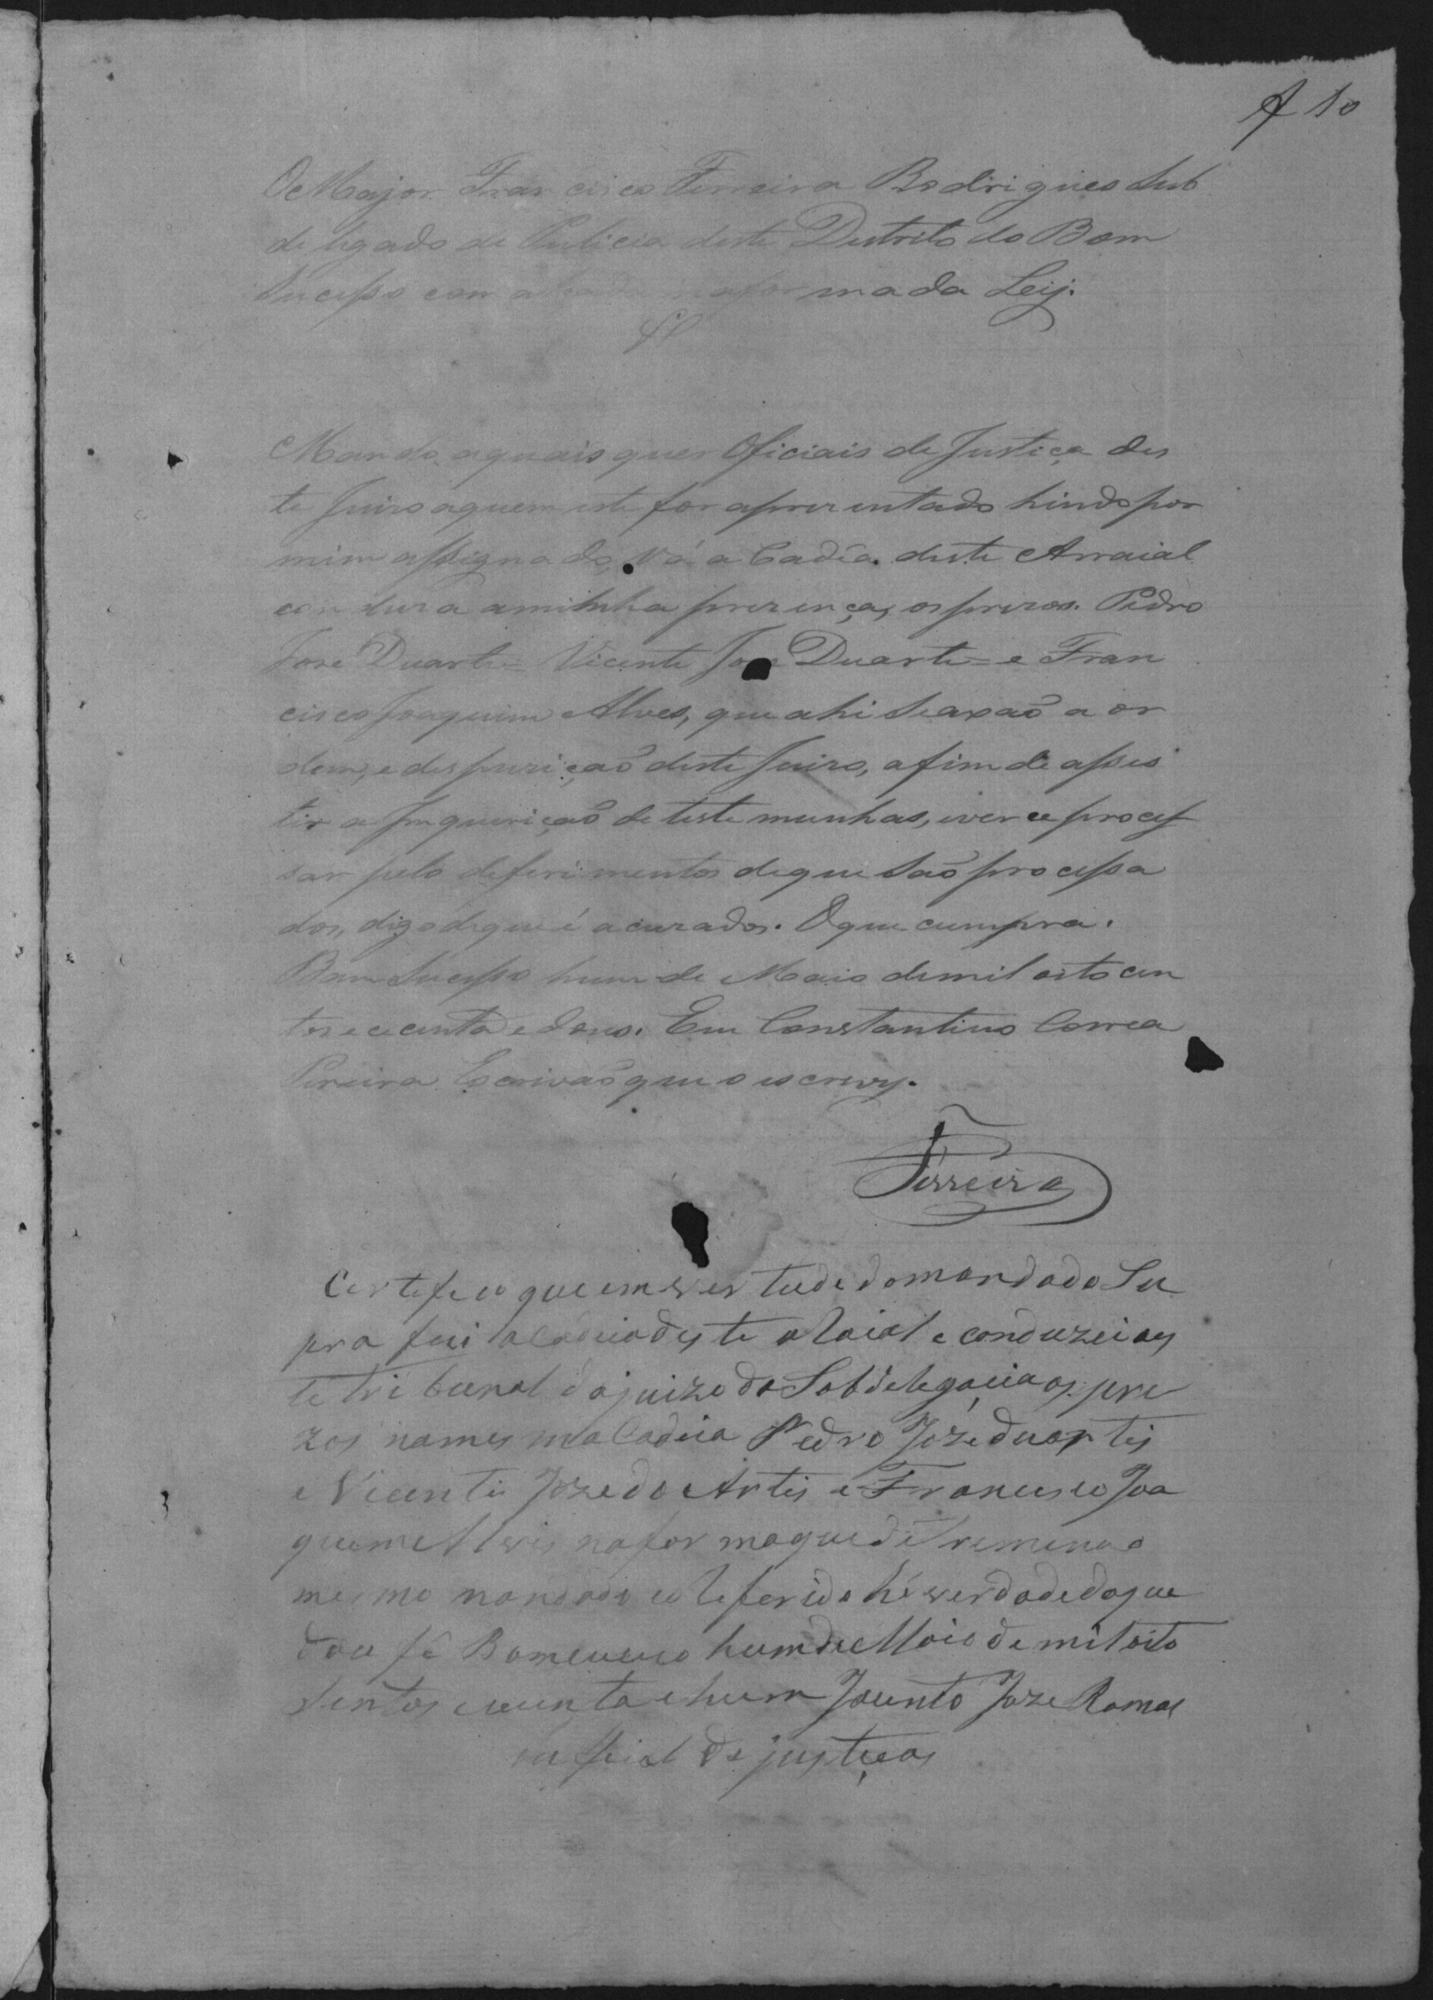 f 10
O Major Francisco Ferreira Rodrigues Sub
delegado de Policia deste Destrito do Bom
Sucesso com alçada na forma da Leij.
Mando aquais quer Oficiais de Justiça des
te Juizo aquem este for aprezentado hindo por
mim assignado, vá a Cadêa deste Arraial
conduza a minha prezença, os prezos. Pedro
José Duarte = Vicente José Duarte = e Fran
cisco Joaquim Alves, que ahi seaxaõ a or
dem, e despuziçaõ deste Juizo, afim de asses
tir a Inquiriçaõ de testemunhas, e ver ce proces
sar pelo deferimentos deque saõ processa
dos, digo deque é acuzados. Oque cumpra.
Bom Sucesso hum de Maio demil oitocen
tos e cecenta e dous. Eu Constantino Correa
Pereira Escrivaõ que o escrevy.
Ferreira
Certefico que em vertude do mandado Su
pra fui a Cadeia deste aRaial e conduzei aes
te tribunal do juizo da Sobdelegacia os pre
zos na mesma Cadeia Pedro Joze duartes
e Vicente Joze do Artes e Francisco Joa
quem Alves na forma que detremena o
mesmo mandado e o Referido hé verdade do que
dou fé Bomcuceço hum de Maio de mil oito
sentos e cecenta e hum Jacinto Joze Ramos
oficial de justiças